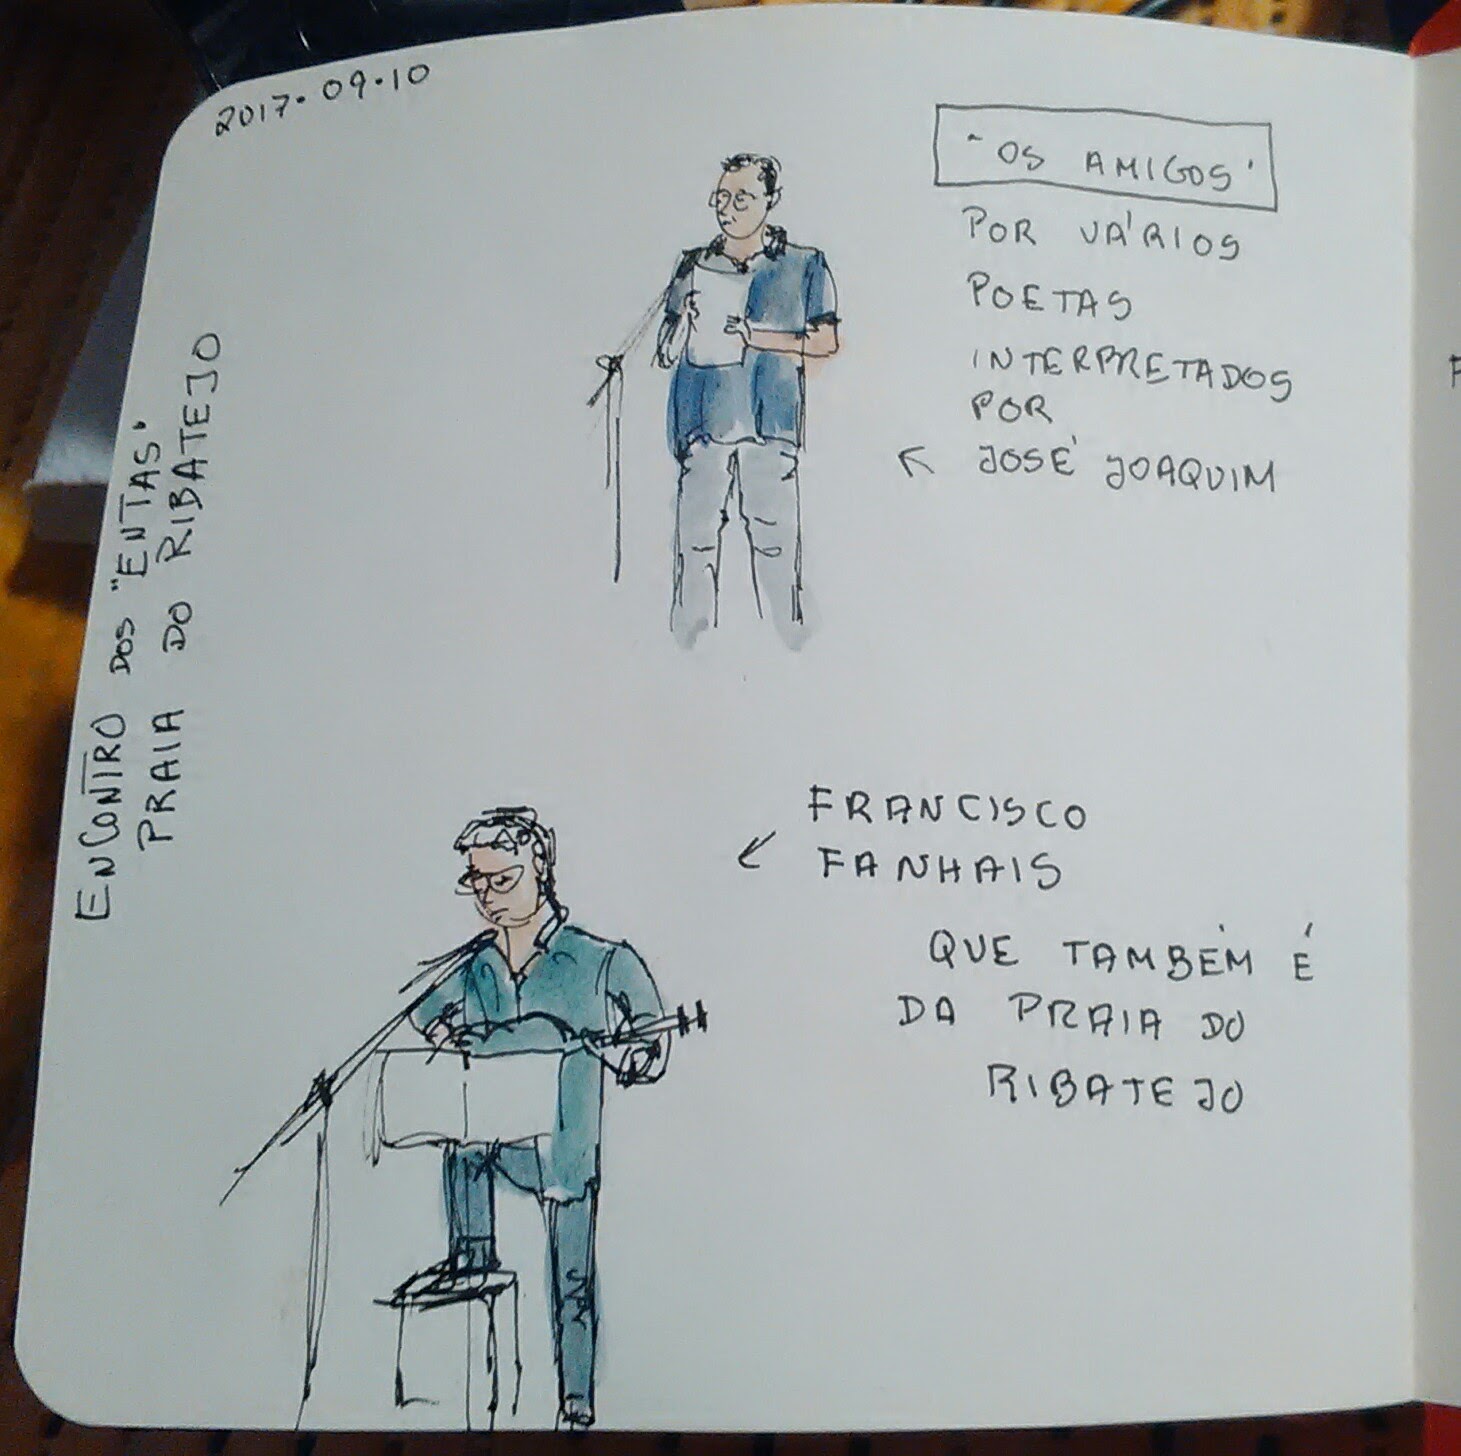 2017.09.10
ENCONTRO DOS "ENTAS"
PRAIA DO RIBATEJO
"OS AMIGOS"
POR VÁRIOS
POETAS
INTERPRETADOS
POR
JOSÉ JOAQUIM
FRANCISCO
FANHAIS
QUE TAMBÉM É
DA PRAIA DO
RIBATEJO